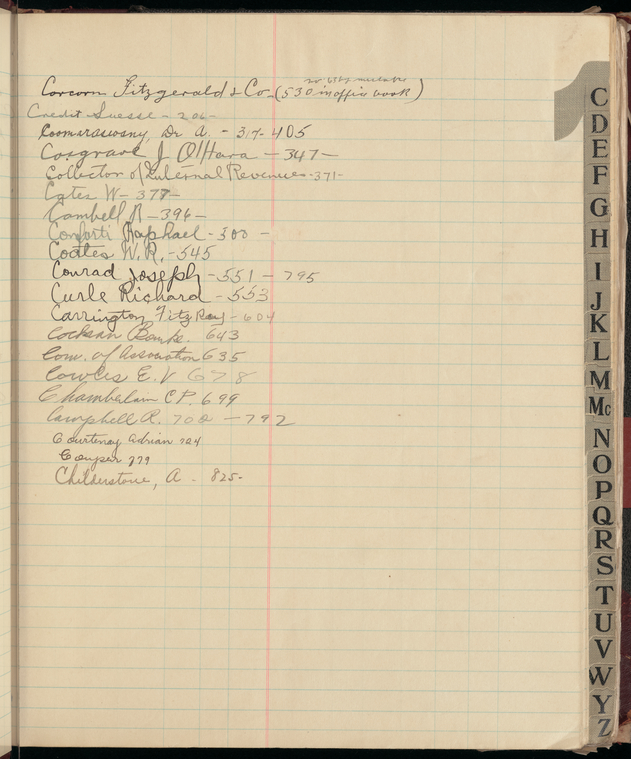 Corcorn Fitzgerald & Co - (530 in office book)
Credit Suesse - 206 -
Coomaraswamy, Dr A. - 317 - 405
Cosgrave J O'Hara - 347 -
Collector of Internal Revenues - 371 -
Cates W - 377 -
Cambell R - 396 -
Conforti Raphael - 300 -
Coates W. R. - 545
Conrad Joseph - 551 - 795
Curle Richard - 553
Carrington Fitz Roy - 604
Cochran 643
Com. of Association 635
Cowles E. V 678
Chamberlain C P. 699
Campbell R. 702 - 792
Courtenay Adrian 724
Couper 779
Childerstone, A - 825 -
C
D
E
F
G
H
I
J
K
L
M
Mc
N
O
P
Q
R
S
T
U
V
W
Y
Z